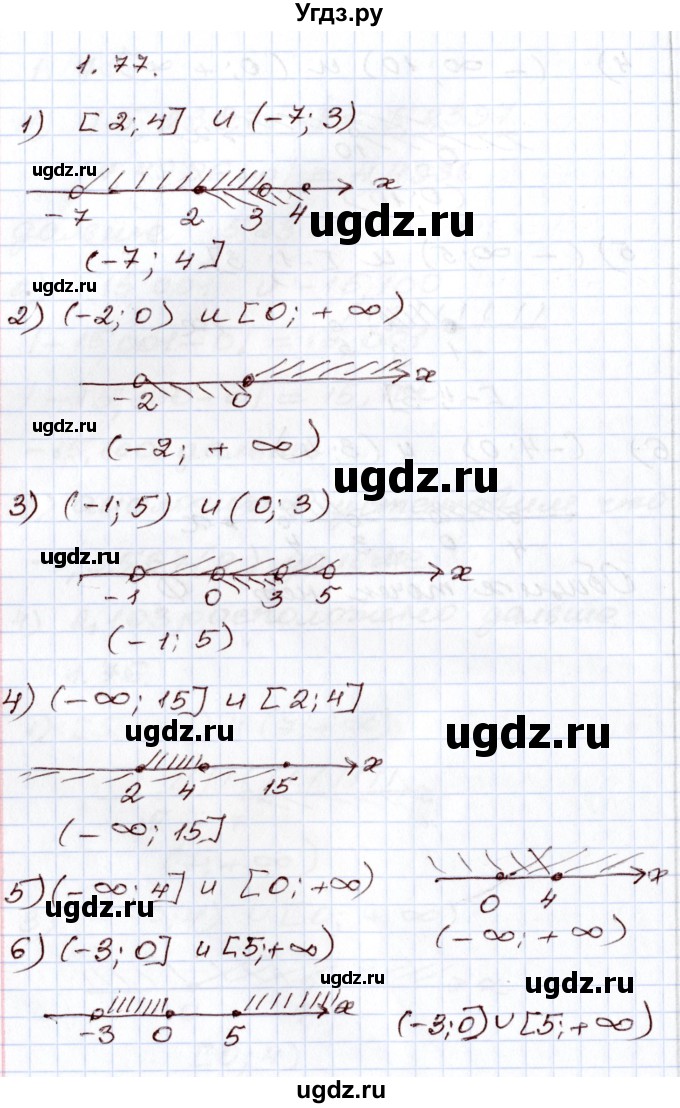 Угдз.ру
1.77.
1) [2; 4] и (-7; 3)
ugdz.ru
-7 2 3 4 x
ugdz.ru
(-7; 4]
2) (-2; 0) и [0; +∞)
-2 0 x
ugdz.ru
(-2; +∞)
ugdz.ru
3) (-1; 5) и (0; 3)
ugdz.ru
-1 0 3 5 x
(-1; 5)
4) (-∞; 15] и [2; 4]
ugdz.ru
ugdz.ru
2 4 15 x
(-∞; 15]
5) (-∞; 4] и [0; +∞)
0 4 x
ugdz.ru
(-∞; +∞)
6) (-3; 0] и [5; +∞)
ugdz.ru
ugdz.ru
-3 0 5 x
(-3; 0] ∪ [5; +∞)
ugdz.ru
ugdz.ru